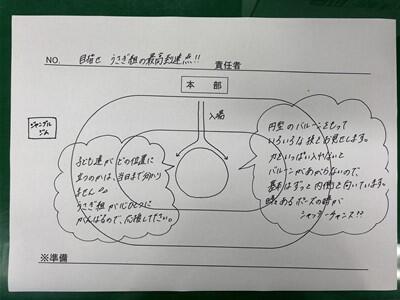 NO. 目指せ うさぎ組の最高到達点!! 責任者
本 部
入場
ジャングル
ジム
子ども達がどの位置に
立つのかは、当日まで分かり
ません
うさぎ組が心ひとつに
がんばるので、応援して下さい。
円型のバルーンをもって
いろいろな技をお見せします。
力をいっぱい入れないと
バルーンがあがらないので、
基本はずっと内側を向いています。
時々あるポーズの時が
シャッターチャンス!?
※準備